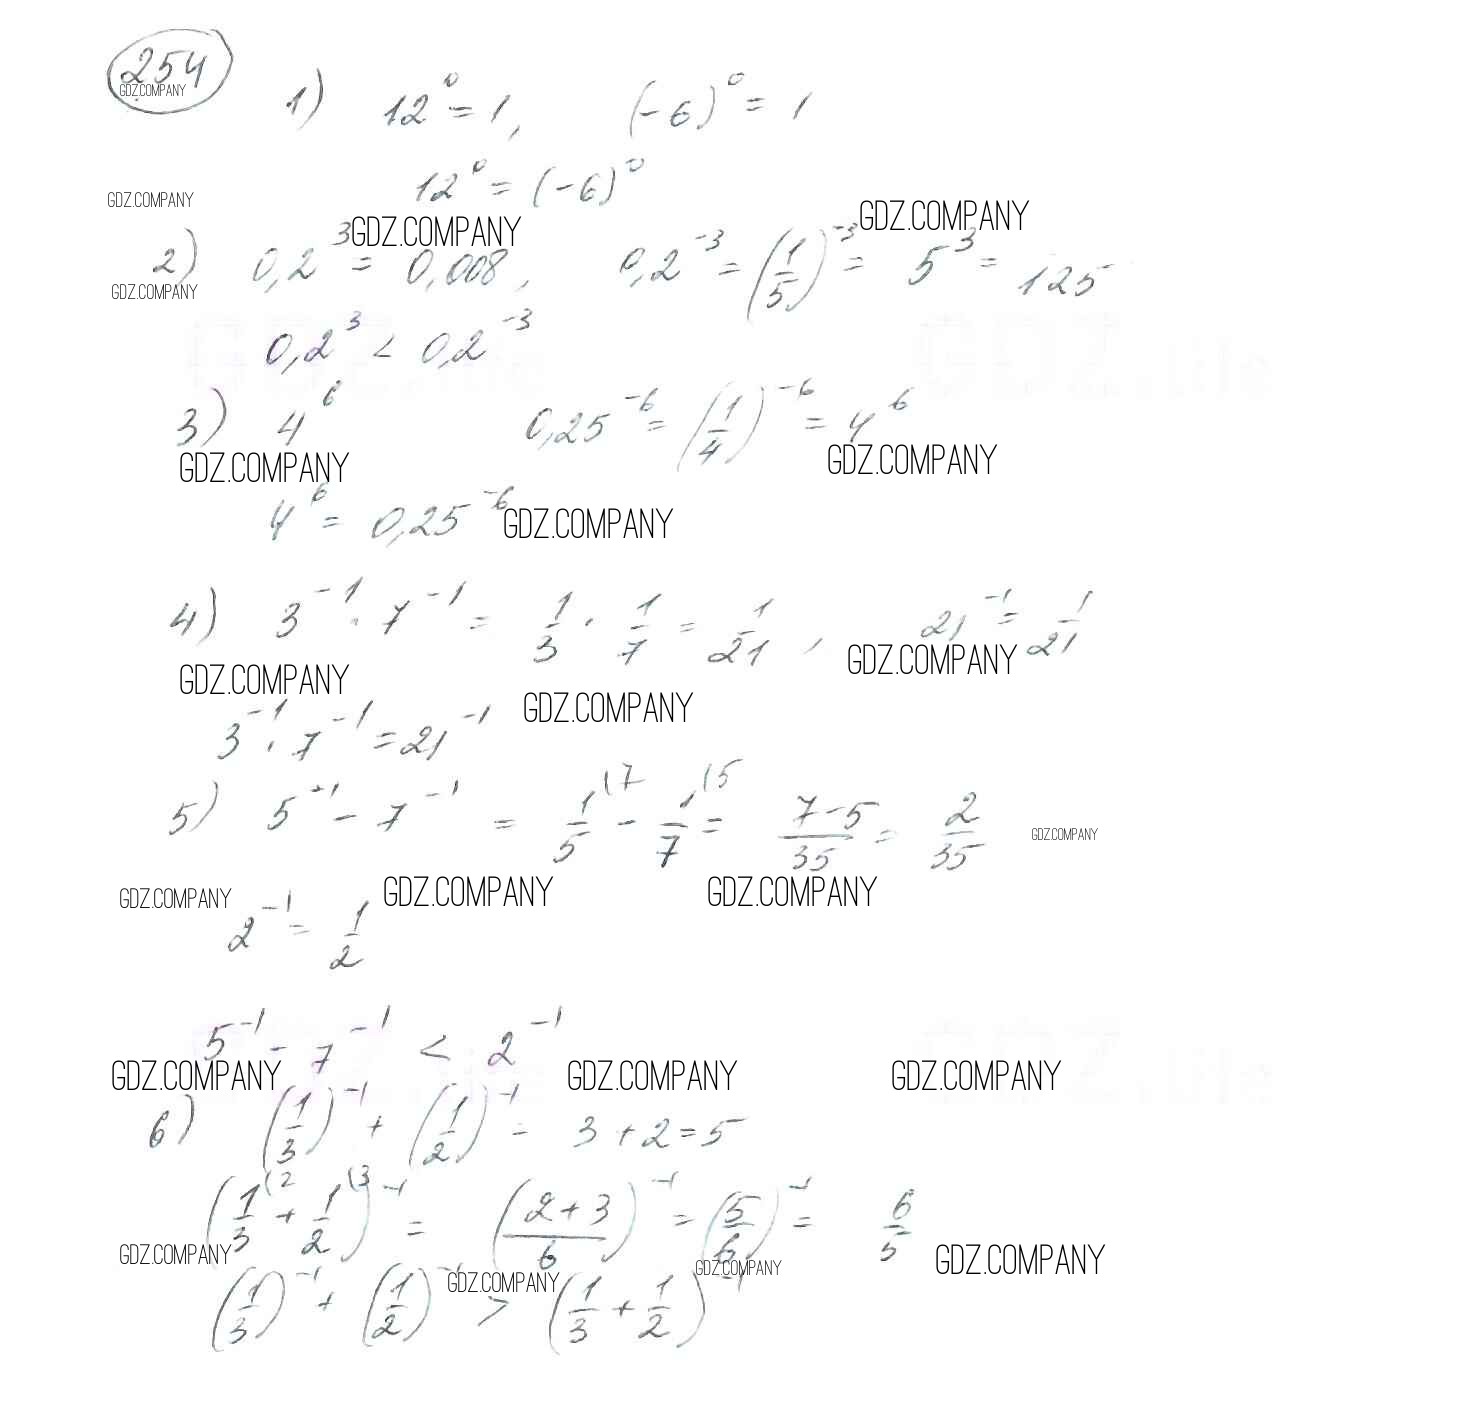 254
GDZ.COMPANY
1) 12⁰ = 1, (-6)⁰ = 1
12⁰ = (-6)⁰
GDZ.COMPANY
GDZ.COMPANY GDZ.COMPANY
2) 0,2³ = 0,008, 0,2⁻³ = (1/5)⁻³ = 5³ = 125
GDZ.COMPANY
0,2³ < 0,2⁻³
3) 4⁶ 0,25⁻⁶ = (1/4)⁻⁶ = 4⁶
GDZ.COMPANY GDZ.COMPANY
4⁶ = 0,25⁻⁶
GDZ.COMPANY
4) 3⁻¹ · 7⁻¹ = 1/3 · 1/7 = 1/21, 21⁻¹ = 1/21
GDZ.COMPANY GDZ.COMPANY GDZ.COMPANY
3⁻¹ · 7⁻¹ = 21⁻¹
5) 5⁻¹ - 7⁻¹ = 1/5 (7 - 1/7 (5 = (7-5)/35 = 2/35
GDZ.COMPANY
GDZ.COMPANY GDZ.COMPANY GDZ.COMPANY
2⁻¹ = 1/2
5⁻¹ - 7⁻¹ < 2⁻¹
GDZ.COMPANY GDZ.COMPANY GDZ.COMPANY
6) (1/3)⁻¹ + (1/2)⁻¹ = 3 + 2 = 5
(1/3 (2 + 1/2 (3)⁻¹ = ((2+3)/6)⁻¹ = (5/6)⁻¹ = 6/5
GDZ.COMPANY GDZ.COMPANY GDZ.COMPANY GDZ.COMPANY
(1/3)⁻¹ + (1/2)⁻¹ > (1/3 + 1/2)⁻¹